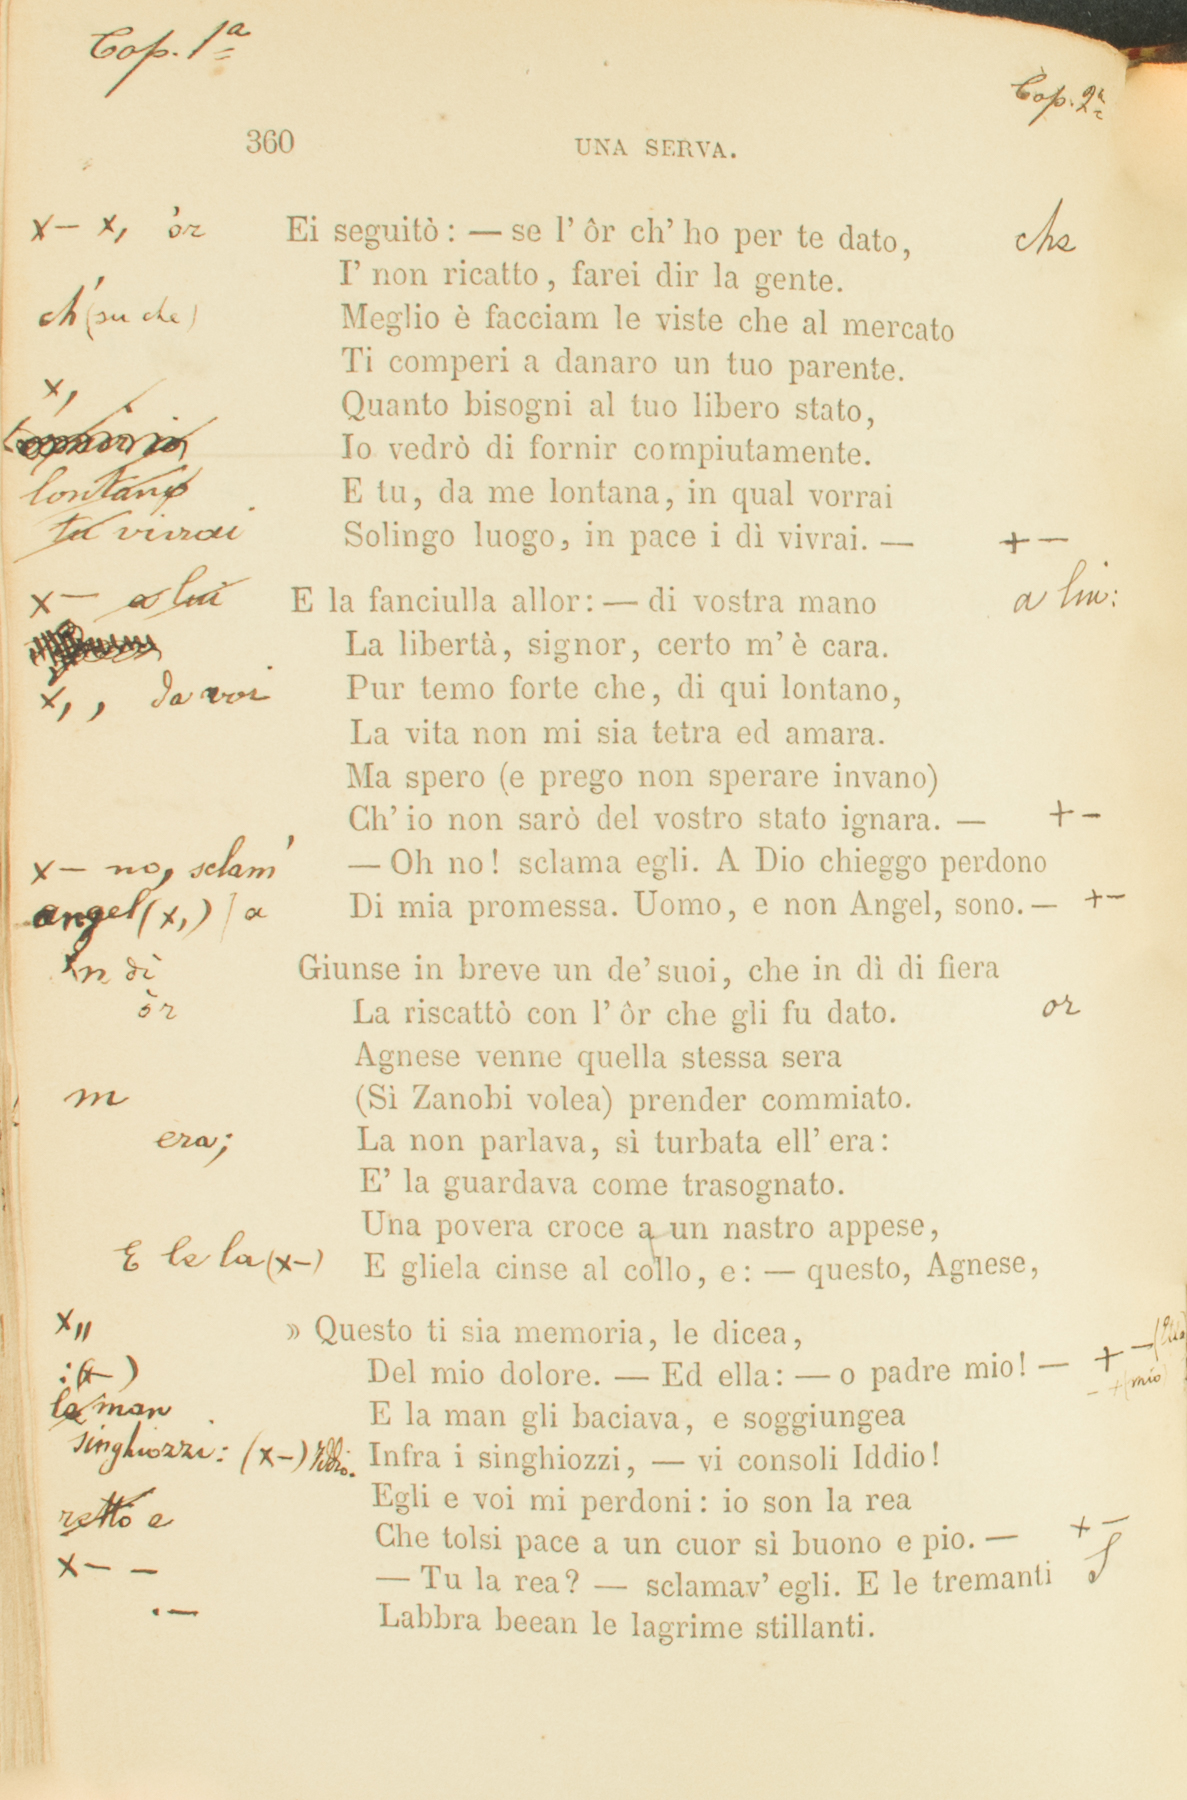 Cop. 1ª
Cop. 2ª
360 UNA SERVA.
x — x, òr Ei seguitò: — se l' ôr ch' ho per te dato, che
I' non ricatto, farei dir la gente.
ch' (su che) Meglio è facciam le viste che al mercato
Ti comperi a danaro un tuo parente.
x, Quanto bisogni al tuo libero stato,
Io vedrò di fornir compiutamente.
lontano E tu, da me lontana, in qual vorrai
tu vivrai Solingo luogo, in pace i dì vivrai. — + —
x — a lui E la fanciulla allor: — di vostra mano a lui:
La libertà, signor, certo m' è cara.
x, , da voi Pur temo forte che, di qui lontano,
La vita non mi sia tetra ed amara.
Ma spero (e prego non sperare invano)
Ch' io non sarò del vostro stato ignara. — + —
x — no, sclam' — Oh no! sclama egli. A Dio chieggo perdono
angel (x,) / a Di mia promessa. Uomo, e non Angel, sono. — + —
in dì Giunse in breve un de' suoi, che in dì di fiera
òr La riscattò con l' ôr che gli fu dato. or
Agnese venne quella stessa sera
m (Sì Zanobi volea) prender commiato.
era; La non parlava, sì turbata ell' era:
E' la guardava come trasognato.
Una povera croce a un nastro appese,
E le la (x—) E gliela cinse al collo, e: — questo, Agnese,
x,, » Questo ti sia memoria, le dicea,
: (x—) Del mio dolore. — Ed ella: — o padre mio! — + — (Ella
— + (mio)
la man E la man gli baciava, e soggiungea
singhiozzi: (x—) Iddio. Infra i singhiozzi, — vi consoli Iddio!
Egli e voi mi perdoni: io son la rea
retto e Che tolsi pace a un cuor sì buono e pio. — + —
x — — — Tu la rea? — sclamav' egli. E le tremanti
. — Labbra beean le lagrime stillanti.